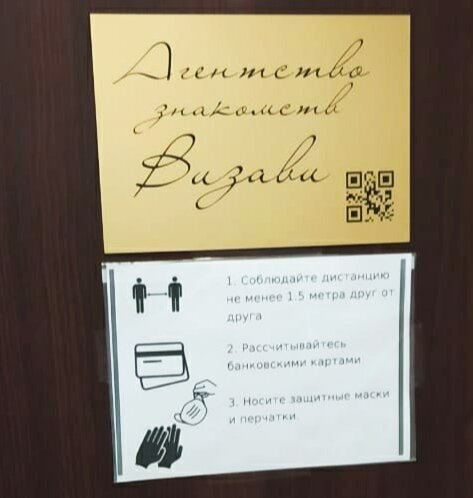 Агентство
знакомств
Визави
1. Соблюдайте дистанцию
не менее 1.5 метра друг от
друга
2. Рассчитывайтесь
банковскими картами
3. Носите защитные маски
и перчатки.